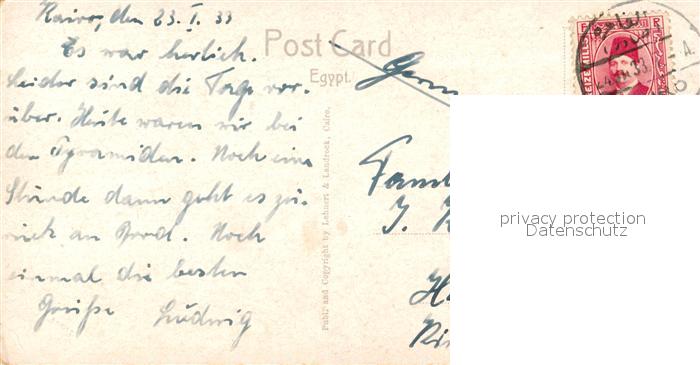 Kairo, den 23. I. 33
Es war herlich.
Leider sind die Tage vor-
über. Heute waren wir bei
den Pyramiden. Noch eine
Stunde dann geht es zu-
rück an Bord. Noch
einmal die besten
Grüße Ludwig
Post Card
Egypt.
Publ. and Copyright by Lehnert & Landrock, Cairo.
Germ
Fami
J.
privacy protection
Datenschutz